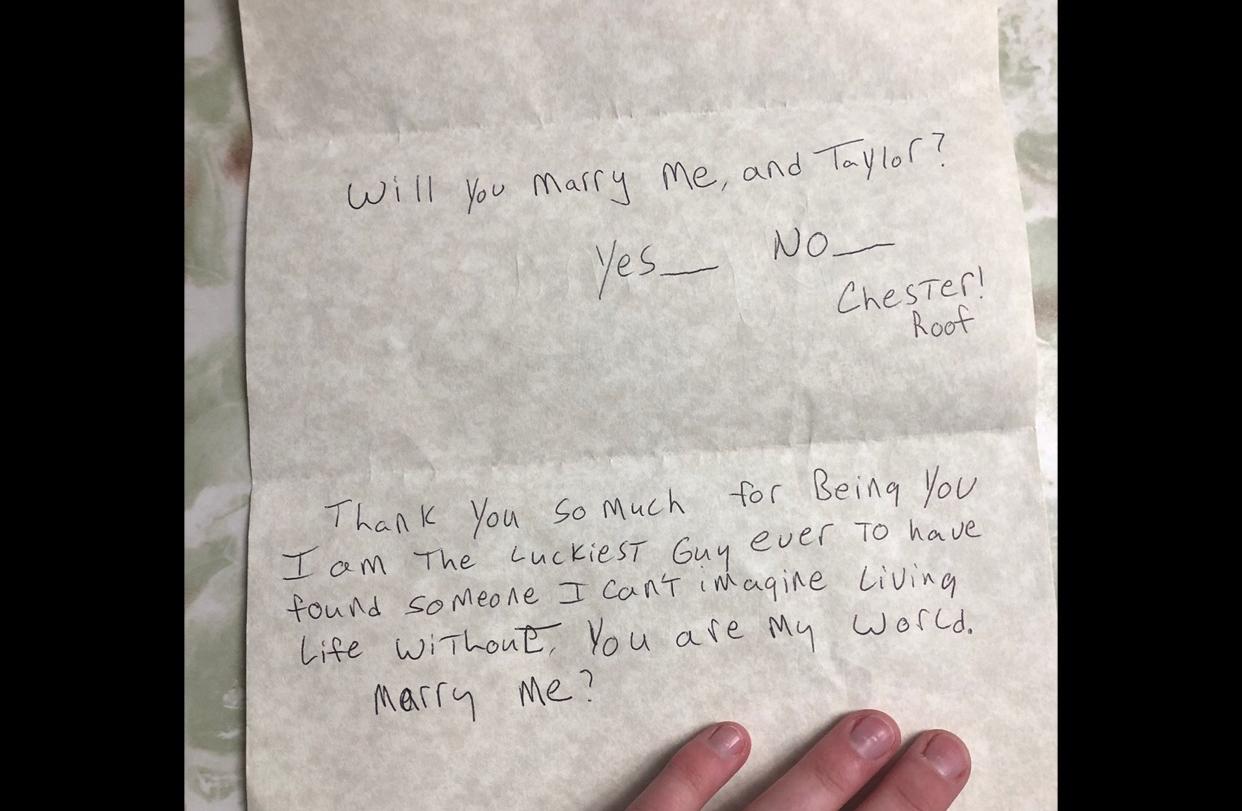 Will you Marry Me, and Taylor?
Yes__ No__
Chester!
Roof
Thank You so Much for Being You
I am The Luckiest Guy ever To have
found someone I can't imagine Living
Life Without, You are My World.
Marry Me?